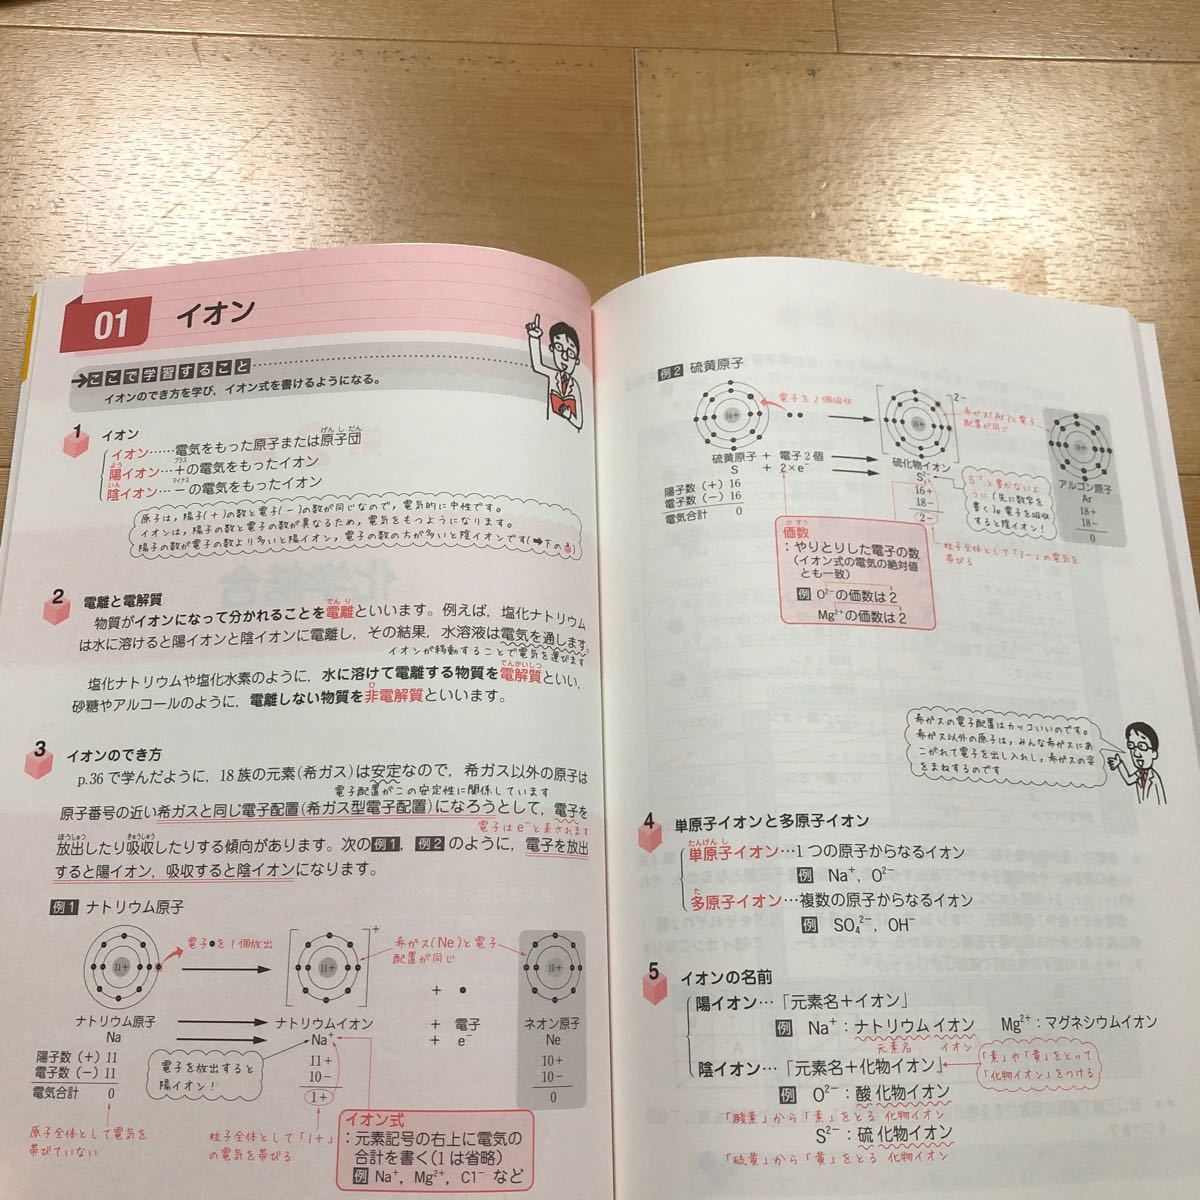 01 イオン
ここで学習すること
イオンのでき方を学び，イオン式を書けるようになる。
1 イオン
イオン……電気をもった原子または原子団
げんしだん
陽イオン…＋の電気をもったイオン
よう プラス
陰イオン…－の電気をもったイオン
いん マイナス
原子は，陽子(＋)の数と電子(－)の数が同じなので，電気的に中性です。
イオンは，陽子の数と電子の数が異なるため，電気をもつようになります。
陽子の数が電子の数より多いと陽イオン，電子の数の方が多いと陰イオンです(➡下の3)
2 電離と電解質
でんり
物質がイオンになって分かれることを電離といいます。例えば，塩化ナトリウム
は水に溶けると陽イオンと陰イオンに電離し，その結果，水溶液は電気を通します。
イオンが移動することで電気を運びます
でんかいしつ
塩化ナトリウムや塩化水素のように，水に溶けて電離する物質を電解質といい，
ひ
砂糖やアルコールのように，電離しない物質を非電解質といいます。
3 イオンのでき方
p.36で学んだように，18族の元素(希ガス)は安定なので，希ガス以外の原子は
電子配置がこの安定性に関係しています
原子番号の近い希ガスと同じ電子配置(希ガス型電子配置)になろうとして，電子を
電子はe⁻と表されます
ほうしゅつ きゅうしゅう
放出したり吸収したりする傾向があります。次の例1，例2のように，電子を放出
すると陽イオン，吸収すると陰イオンになります。
例1 ナトリウム原子
電子●を1個放出
希ガス(Ne)と電子
配置が同じ
11+ 11+ + 10+
+ ●
ナトリウム原子 ナトリウムイオン + 電子 ネオン原子
Na Na⁺ + e⁻ Ne
陽子数(＋) 11 11＋ 10＋
電子数(－) 11 10－ 10－
電気合計 0 1＋ 0
電子を放出すると
陽イオン！
原子全体として電気を
帯びていない
粒子全体として「1＋」
の電気を帯びる
イオン式
：元素記号の右上に電気の
合計を書く(1は省略)
例 Na⁺，Mg²⁺，Cl⁻ など
例2 硫黄原子
電子を2個吸収
2－
希ガス(Ar)と電子
配置が同じ
16+ 16+ 18+
硫黄原子 ＋ 電子2個 硫化物イオン アルゴン原子
S ＋ 2×e⁻ S²⁻ Ar
陽子数(＋) 16 16＋ 18＋
電子数(－) 16 18－ 18－
電気合計 0 2－ 0
S⁻²と書かないよ
うに(先に数字を
書く)。電子を吸収
すると陰イオン！
粒子全体として「2－」の電気を
帯びる
かすう
価数
：やりとりした電子の数
(イオン式の電気の絶対値
とも一致)
例 O²⁻の価数は2
Mg²⁺の価数は2
希ガスの電子配置はカッコいいのです。
希ガス以外の原子は，みんな希ガスにあ
こがれて電子を出し入れし，希ガスの姿
をまねするのです
4 単原子イオンと多原子イオン
たんげんし
単原子イオン…1つの原子からなるイオン
例 Na⁺，O²⁻
た
多原子イオン…複数の原子からなるイオン
例 SO₄²⁻，OH⁻
5 イオンの名前
陽イオン…「元素名＋イオン」
例 Na⁺：ナトリウムイオン Mg²⁺：マグネシウムイオン
元素名 イオン
陰イオン…「元素名＋化物イオン」
「素」や「黄」をとって
「化物イオン」をつける
例 O²⁻：酸化物イオン
「酸素」から「素」をとる 化物イオン
S²⁻：硫化物イオン
「硫黄」から「黄」をとる 化物イオン